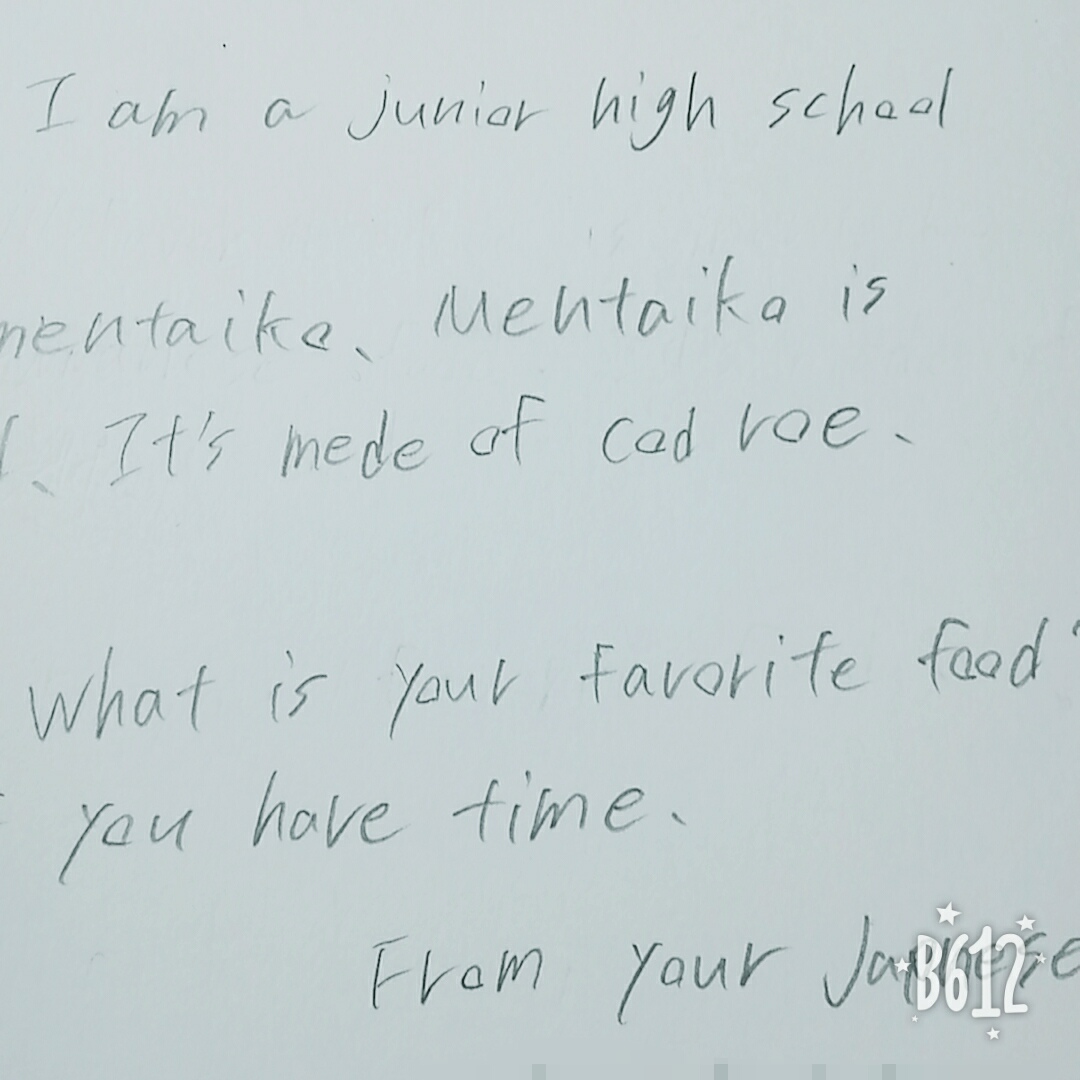 I am a junior high school
mentaiko、 Mentaiko is
、 It's mede of cod roe、
What is your favorite food?
you have time、
From your Japanese
B612